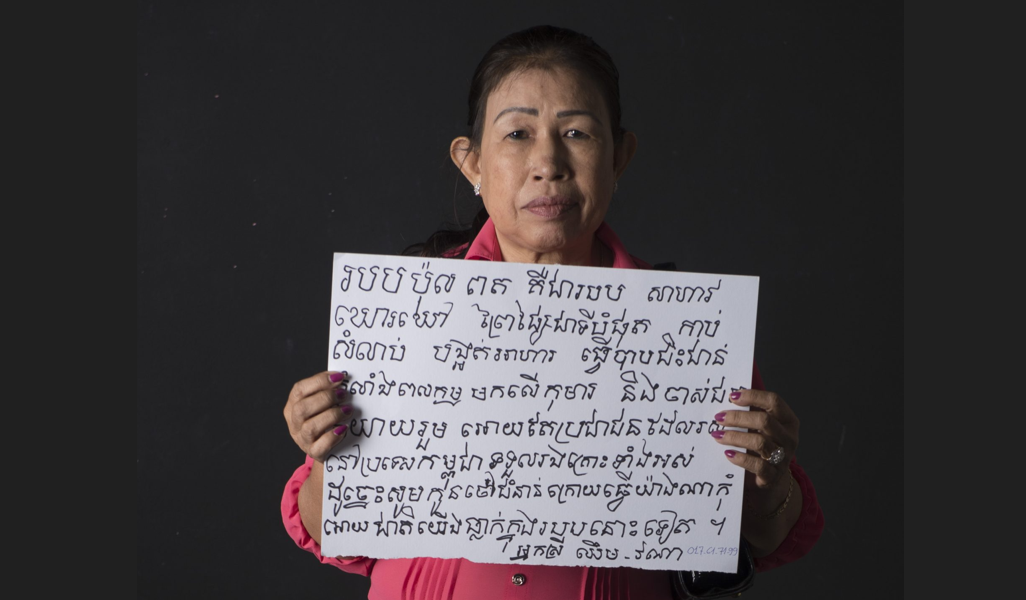 របប ប៉ុល ពត គឺជារបប សាហាវ
ឃោរឃៅ ព្រៃផ្សៃជាទីបំផុត កាប់
សំលាប់ បង្អត់អាហារ ធ្វើបាបជិះជាន់
មកលើកុមារ និងចាស់ជរា
អោយតែប្រជាជនដែលរស់
នៅប្រទេសកម្ពុជា ទទួលរងគ្រោះទាំងអស់
ដូច្នេះសូមកូនចៅជំនាន់ក្រោយធ្វើយ៉ាងណាកុំ
អោយជាតិយើងធ្លាក់ក្នុងរបបនោះទៀត ។
អ្នកស្រី ឈឹម - វណា